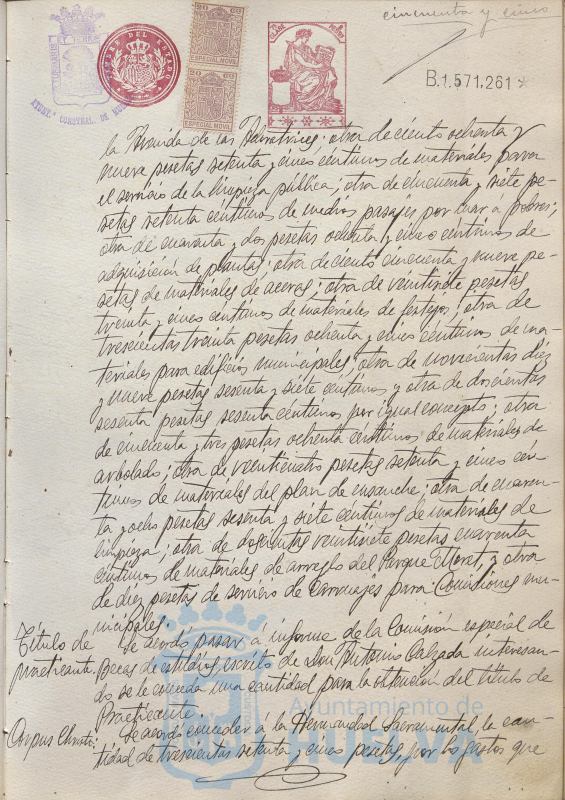 cincuenta y cinco
B.1.571.261*
20 CTS
ESPECIAL MOVIL
20 CTS
ESPECIAL MOVIL
TIMBRE DEL ESTADO
la Avenida de las ; otra de ciento ochenta y
nueve pesetas setenta y cinco centimos de materiales para
el servicio de la limpieza pública; otra de cincuenta y siete pe-
setas setenta céntimos de medios pasajes por mar á pobres;
otra de cuarenta y dos pesetas ochenta y cinco centimos de
adquisición de plantas; otra de ciento cincuenta y nueve pe-
setas de materiales de aceras; otra de veintisiete pesetas
treinta y cinco centimos de materiales de festejos; otra de
trescientas treinta pesetas ochenta y cinco centimos de ma-
teriales para edificios municipales; otra de novecientas diez
y nueve pesetas sesenta y siete centimos y otra de doscientas
sesenta pesetas sesenta centimos por igual concepto; otra
de cincuenta y tres pesetas ochenta centimos de materiales de
arbolado; otra de veinticuatro pesetas setenta y cinco cén-
timos de materiales del plan de ensanche; otra de cuaren-
ta y ocho pesetas sesenta y siete centimos de materiales de
limpieza; otra de doscientas veintisiete pesetas cuarenta
centimos de materiales de arreglo del Parque Moret, y otra
de diez pesetas de servicio de carruajes para Comisiones mu-
nicipales.
Título de
practicante.
Se acordó pasar á informe de la Comisión especial de
Becas de estudios escrito de Don Antonio Calzada interesan-
do se le conceda una cantidad para la obtención del título de
Practicante.
Corpus Christi.
Se acordó conceder á la Hermandad Sacramental, la can-
tidad de trescientas setenta y cinco pesetas, por los gastos que
Ayuntamiento de
HUELVA